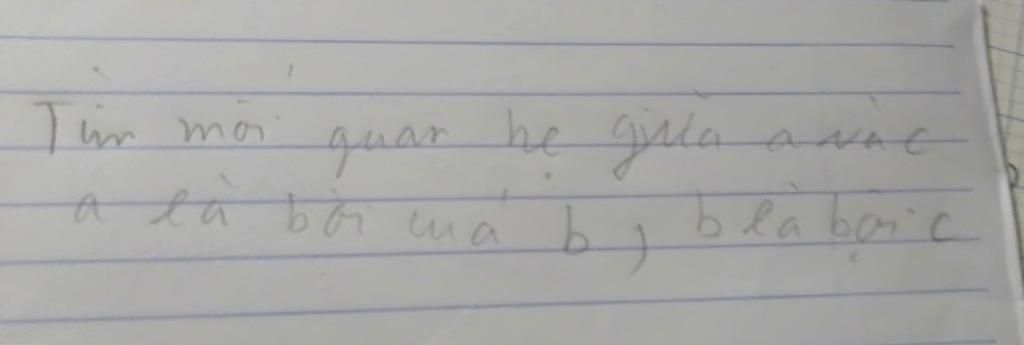 Tìm mối quan hẹ giữa a và c
a là bội củả b, b là bội c